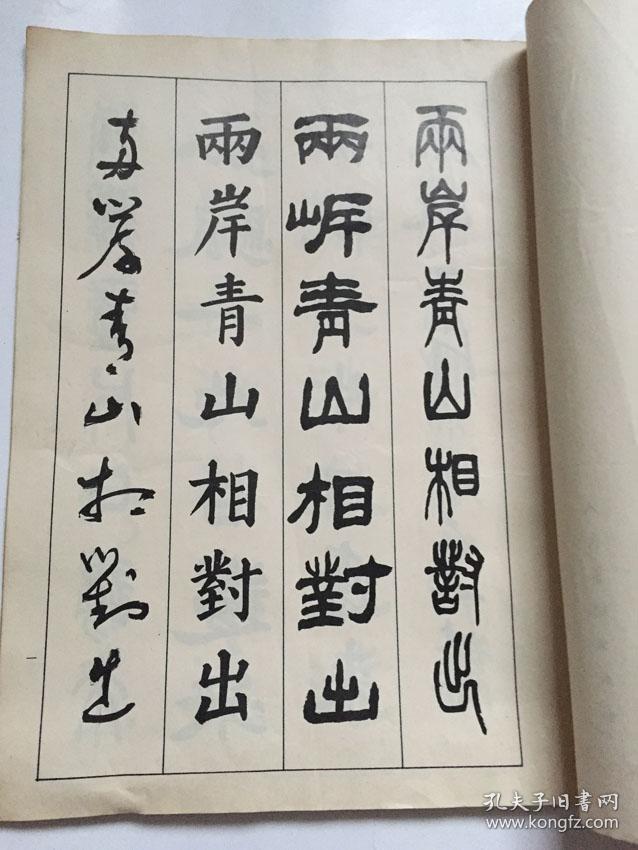 兩岸青山相對出
兩岸青山相對出
兩岸青山相對出
兩岸青山相對出
一
孔夫子旧書网
www.kongfz.com